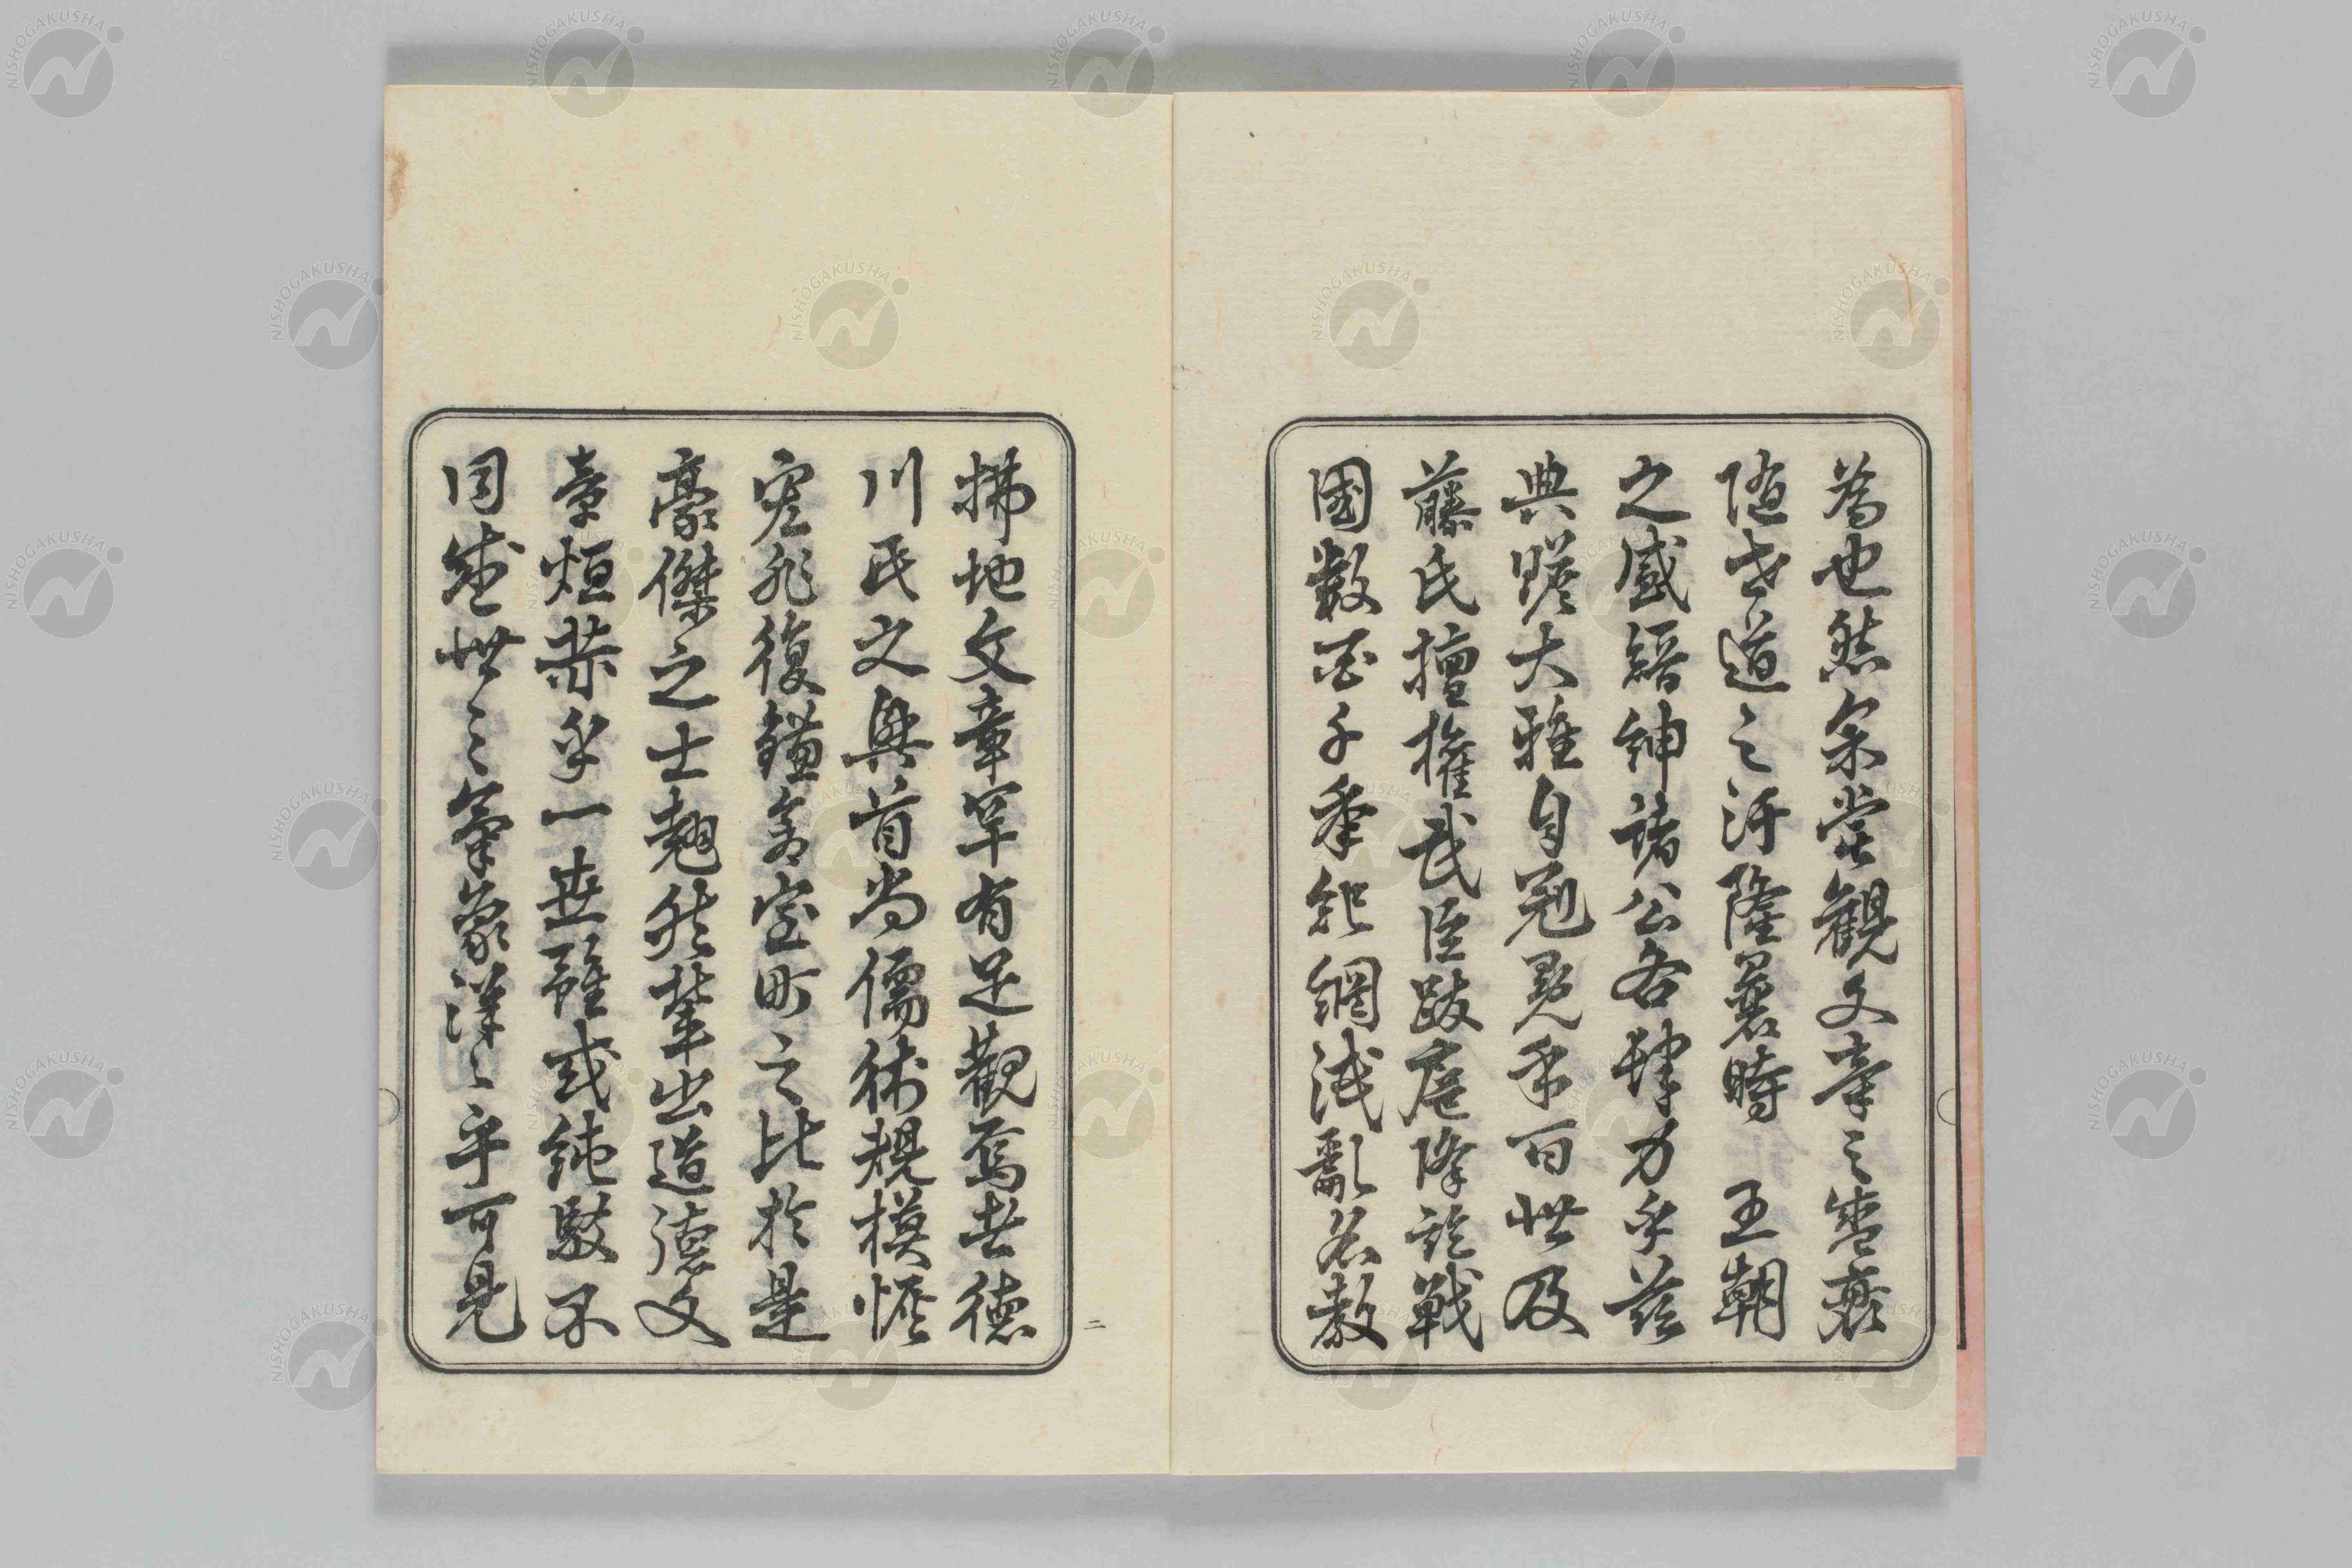 為也然余嘗觀文章之盛衰
随世道之汙隆曩時　王朝
之盛縉紳諸公各肆力乎茲
典謨大雅自冠冕乎百世及
藤氏擅權武臣跋扈降訖戰
國數百千季紀綱淺亂名教
拂地文章罕有足觀焉者德
川氏之興首尚儒術規模恢
宏非復鎌倉室町之比於是
豪傑之士翹然輩出道德文
章烜赫乎一世雖或純駁不
同盛世之氣象洋々乎可見
二
NISHOGAKUSHA